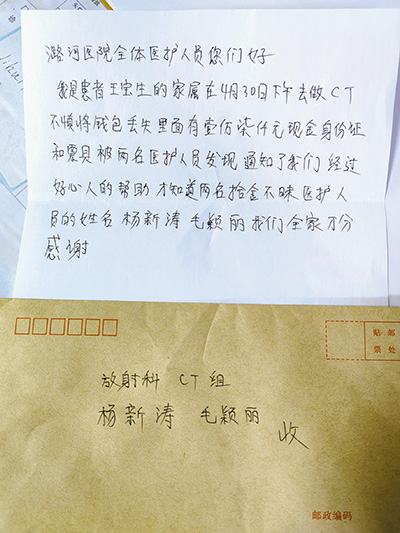 潞河医院全体医护人员您们好
我是患者王宝生的家属在4月30日下午去做CT
不慎将钱包丢失里面有壹仟柒仟元现金身份证
和票具被两名医护人员发现通知了我们经过
好心人的帮助才知道两名拾金不昧医护人
员的姓名杨新涛毛颖丽我们全家万分
感谢
贴邮
票处
放射科 CT组
杨新涛 毛颖丽
收
邮政编码